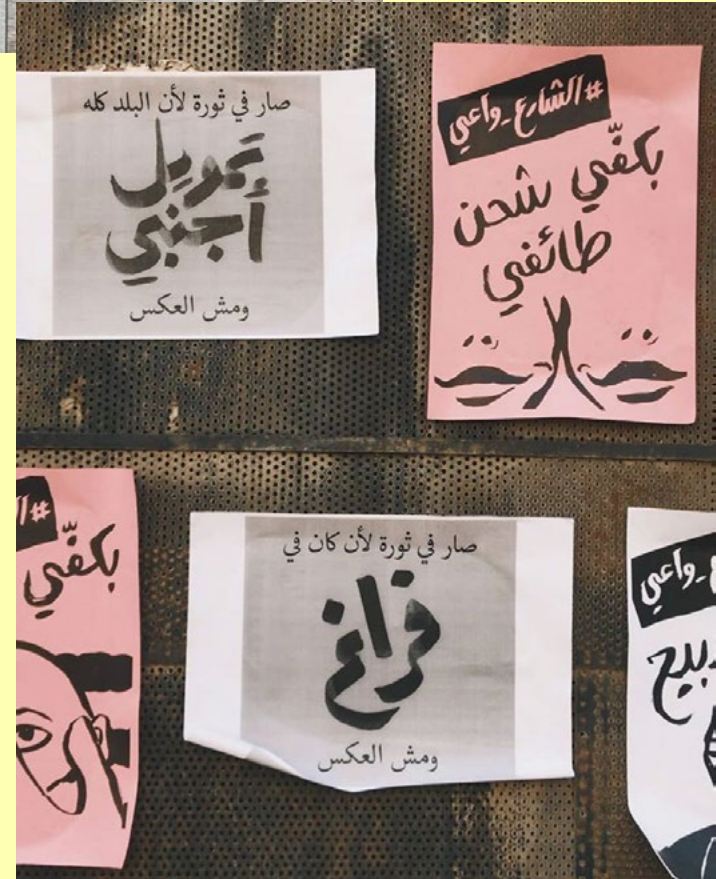 صار في ثورة لأن البلد كله
تمويل
أجنبي
ومش العكس
#الشارع_واعي
بكفّي شحن
طائفي
بكفّي
صار في ثورة لأن كان في
فراغ
ومش العكس
واعي